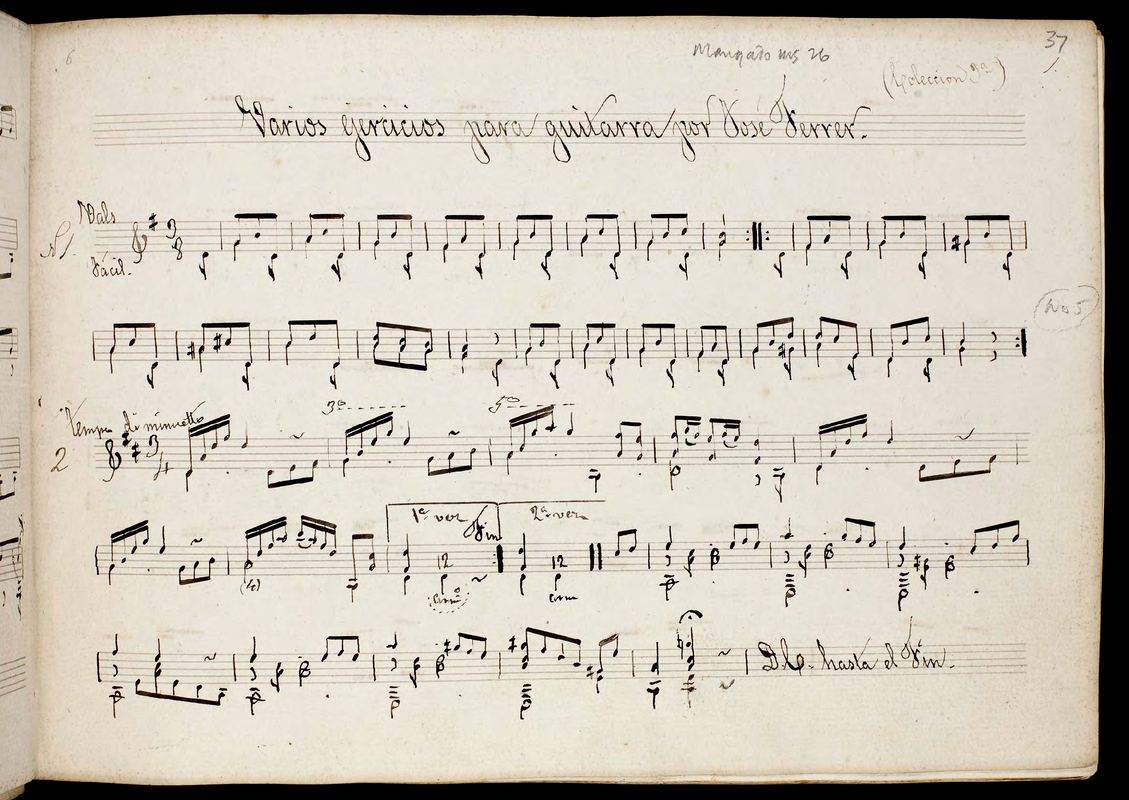 6
Mangado ms 26
37
(Coleccion 3ª)
Varios ejercicios para guitarra por José Ferrer.
Vals
Nº 1.
3
8
Fácil.
No 5
Tempo di minuetto
3ª
5ª
2
3
4
1ª vez
Fin
2ª vez
12
12
(4)
arm
arm
D.C. hasta el Fin.